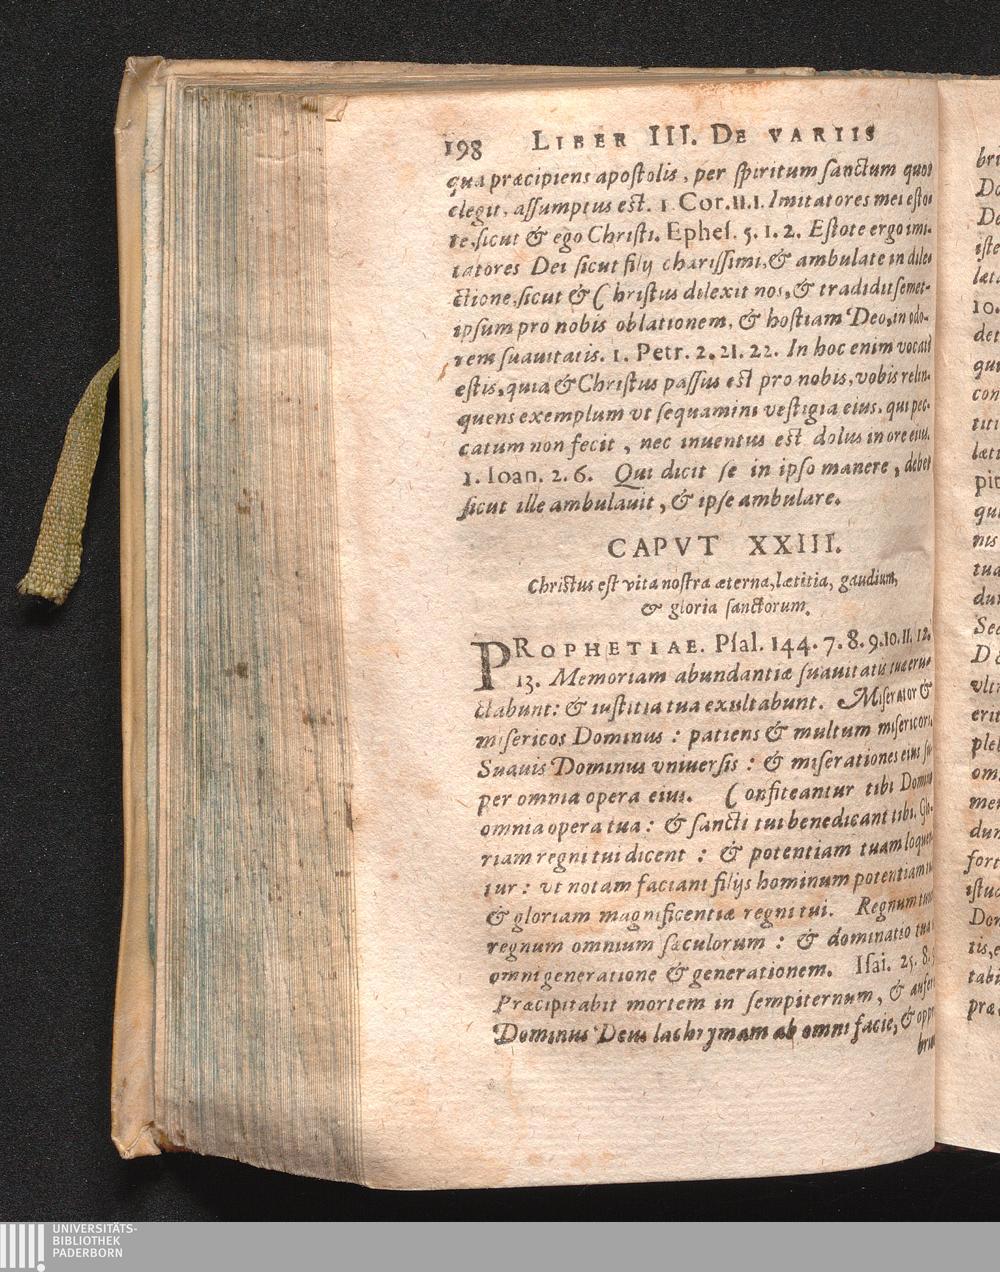 198 LIBER III. DE VARIIS
qua præcipiens apostolis, per spiritum sanctum quos
elegit, assumptus est. 1 Cor. 11.1. Imitatores mei esto-
te, sicut & ego Christi. Ephes. 5. 1. 2. Estote ergo imi-
tatores Dei sicut filij charissimi, & ambulate in dile-
ctione, sicut & Christus dilexit nos, & tradidit semet-
ipsum pro nobis oblationem, & hostiam Deo, in odo-
rem suauitatis. 1. Petr. 2. 21. 22. In hoc enim vocati
estis, quia & Christus passus est pro nobis, vobis relin-
quens exemplum vt sequamini vestigia eius. qui pec-
catum non fecit, nec inuentus est dolus in ore eius.
1. Ioan. 2. 6. Qui dicit se in ipso manere, debet
sicut ille ambulauit, & ipse ambulare.
CAPVT XXIII.
Christus est vita nostra æterna, lætitia, gaudium,
& gloria sanctorum.
PROPHETIAE. Psal. 144. 7. 8. 9. 10. 11. 12.
13. Memoriam abundantiæ suauitatis tuæ eru-
ctabunt: & iustitia tua exultabunt. Miserator &
misericos Dominus: patiens & multum misericors.
Suauis Dominus vniuersis: & miserationes eius su-
per omnia opera eius. Confiteantur tibi Domine
omnia opera tua: & sancti tui benedicant tibi. Glo-
riam regni tui dicent: & potentiam tuam loquen-
tur: vt notam faciant filijs hominum potentiam tu
& gloriam magnificentiæ regni tui. Regnum tuum
regnum omnium sæculorum: & dominatio tua
omni generatione & generationem. Isai. 25. 8.
Præcipitabit mortem in sempiternum, & aufer
Dominus Deus lachrymam ab omni facie, & opp
bri
Do
Do
iste
læt
10.
det
qui
con
titi
læti
pit
qu
nis
tua
dun
Sec
De
vlt
erit
pleb
om
men
dun
fort
istud
Don
tis, e
tabi
præ
UNIVERSITÄTS-
BIBLIOTHEK
PADERBORN